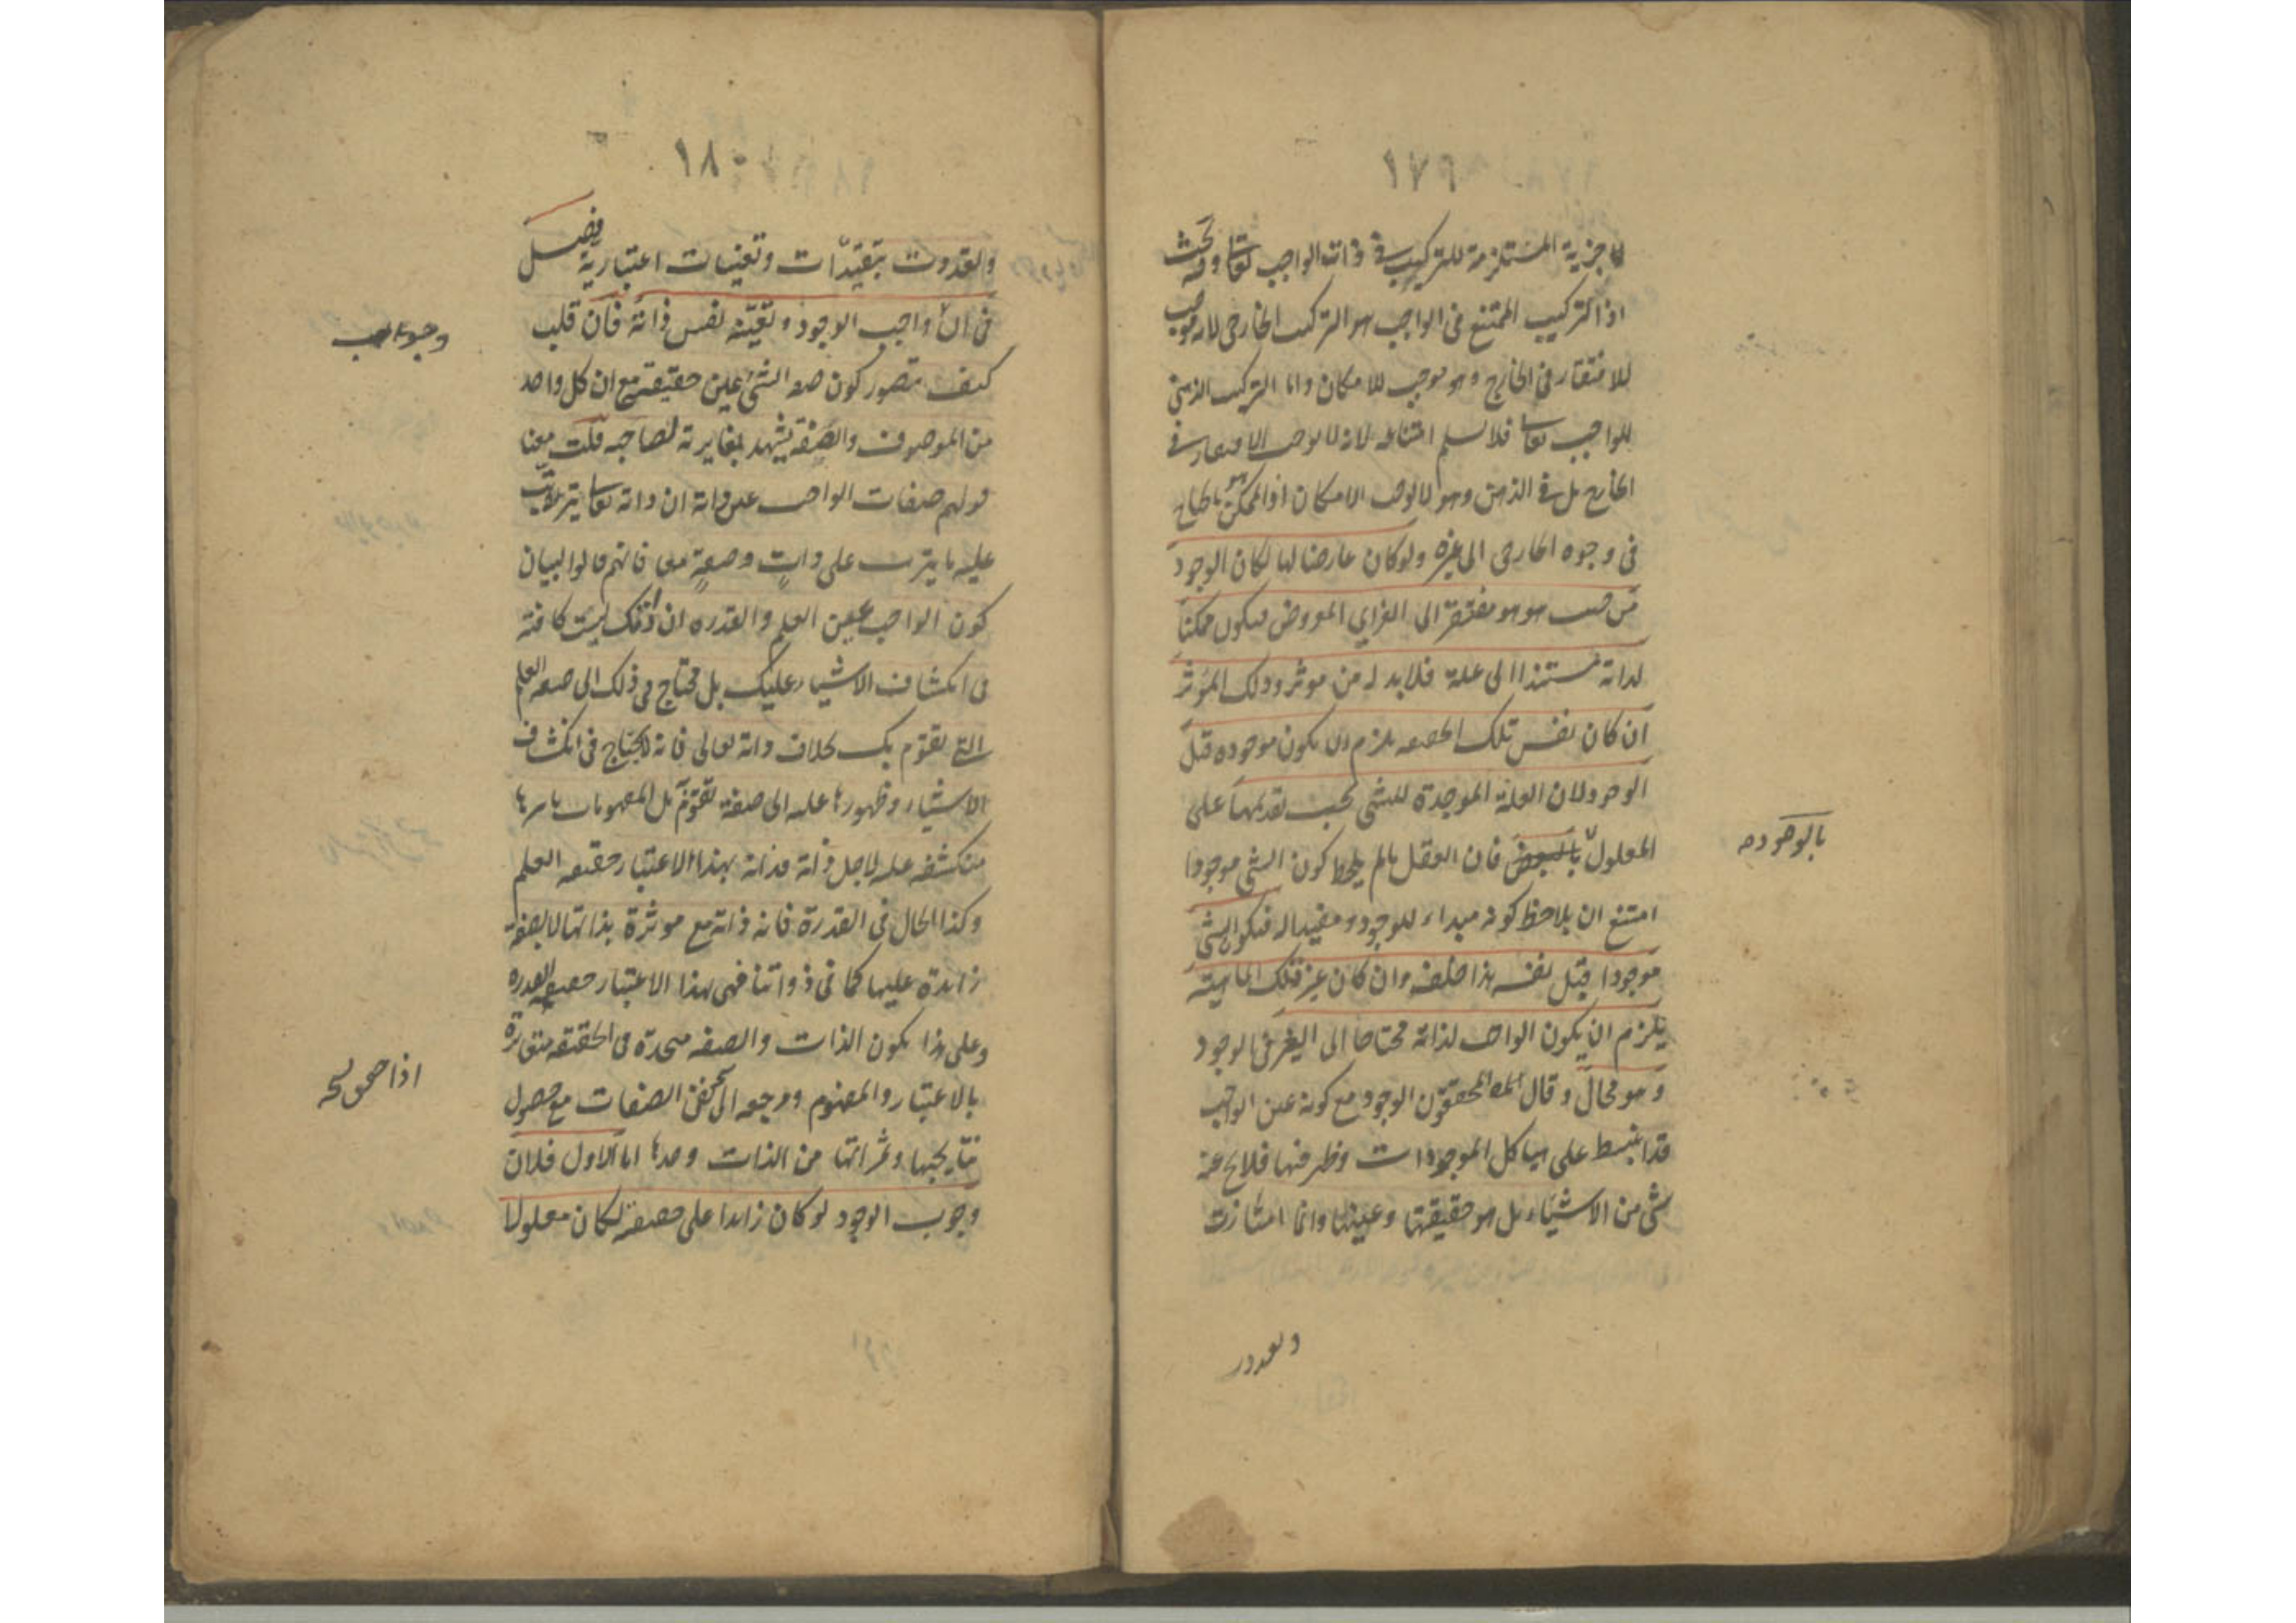 ١٧٩
لا جزئية المستلزمة للتركيب فى ذات الواجب تعا وفيه بحث
اذ التركيب الممتنع فى الواجب هو التركيب الخارجى لانه موجب
للافتقار فى الخارج وهو موجب للامكان واما التركيب الذهنى
للواجب تعا فلا نسلم امتناعه لانه لا يوجب الافتقار فى
الخارج بل فى الذهن وهو لا يوجب الامكان اذ الممكن هو ما يحتاج
فى وجوده الخارجى الى غيره ولو كان عارضا لها لكان الوجود
من حيث هو هو مفتقرا الى الغير اي المعروض فيكون ممكنا
لذاته مستندا الى علة فلا بد له من موثر وذلك المؤثر
ان كان نفس تلك الحقيقه يلزم ان يكون موجوده قبل
الوجود لان العلة الموجدة للشى يجب تقدمها على
المعلول بالوجود فان العقل ما لم يلاحظ كون الشى موجودا
امتنع ان يلاحظ كونه مبداء للوجود ومفيدا له فيكون الشى
موجودا قبل نفسه هذا خلف وان كان غير تلك الماهيته
يلزم ان يكون الواجب لذاته محتاجا الى الغير فى الوجود
وهو محال وقال المحققون الوجود مع كونه عين الواجب
قد انبسط على هياكل الموجودات وظهر فيها فلا يخ عنه
شى من الاشياء بل هو حقيقتها وعينها وانما امتازت
وتعددت
بالوجود صح
١٨٠
وتعددت بتقيدات وتعينات اعتبارية فصل
فى ان واجب الوجود وتعينه نفس ذاته فان قلت
كيف يتصور كون صفه الشى عين حقيقته مع ان كل واحد
من الموصوف والصفة يشهد بمغايرته لصاحبه قلت معنا
قولهم صفات الواجب عين ذاته ان ذاته تعا يترتب
عليه ما يترتب على ذات وصفة معا فانهم قالوا لبيان
كون الواجب عين العلم والقدره ان ذاتك ليست كافته
فى انكشاف الاشياء عليك بل تحتاج فى ذلك الى صفه العلم
التى تقوم بك بخلاف ذاته تعالى فانه لا يحتاج فى انكشاف
الاشياء وظهورها عليه الى صفة تقوم به بل المفهومات باسرها
منكشفه عليه لاجل ذاته فذاته بهذا الاعتبار حقيقه العلم
وكذا الحال فى القدرة فانه ذاته مع موثرة بذاتها لا بصفة
زايدة عليها كما فى ذواتنا فهى بهذا الاعتبار حقيقه القدره
وعلى هذا يكون الذات والصفه متحدة فى الحقيقه متغايرة
بالاعتبار والمفهوم ومرجعه الى نفى الصفات مع حصول
نتايجها وثمراتها من الذات وحدها اما الاول فلان
وجوب الوجود لو كان زايدا على حقيقته لكان معلولا
اذا حقق صح